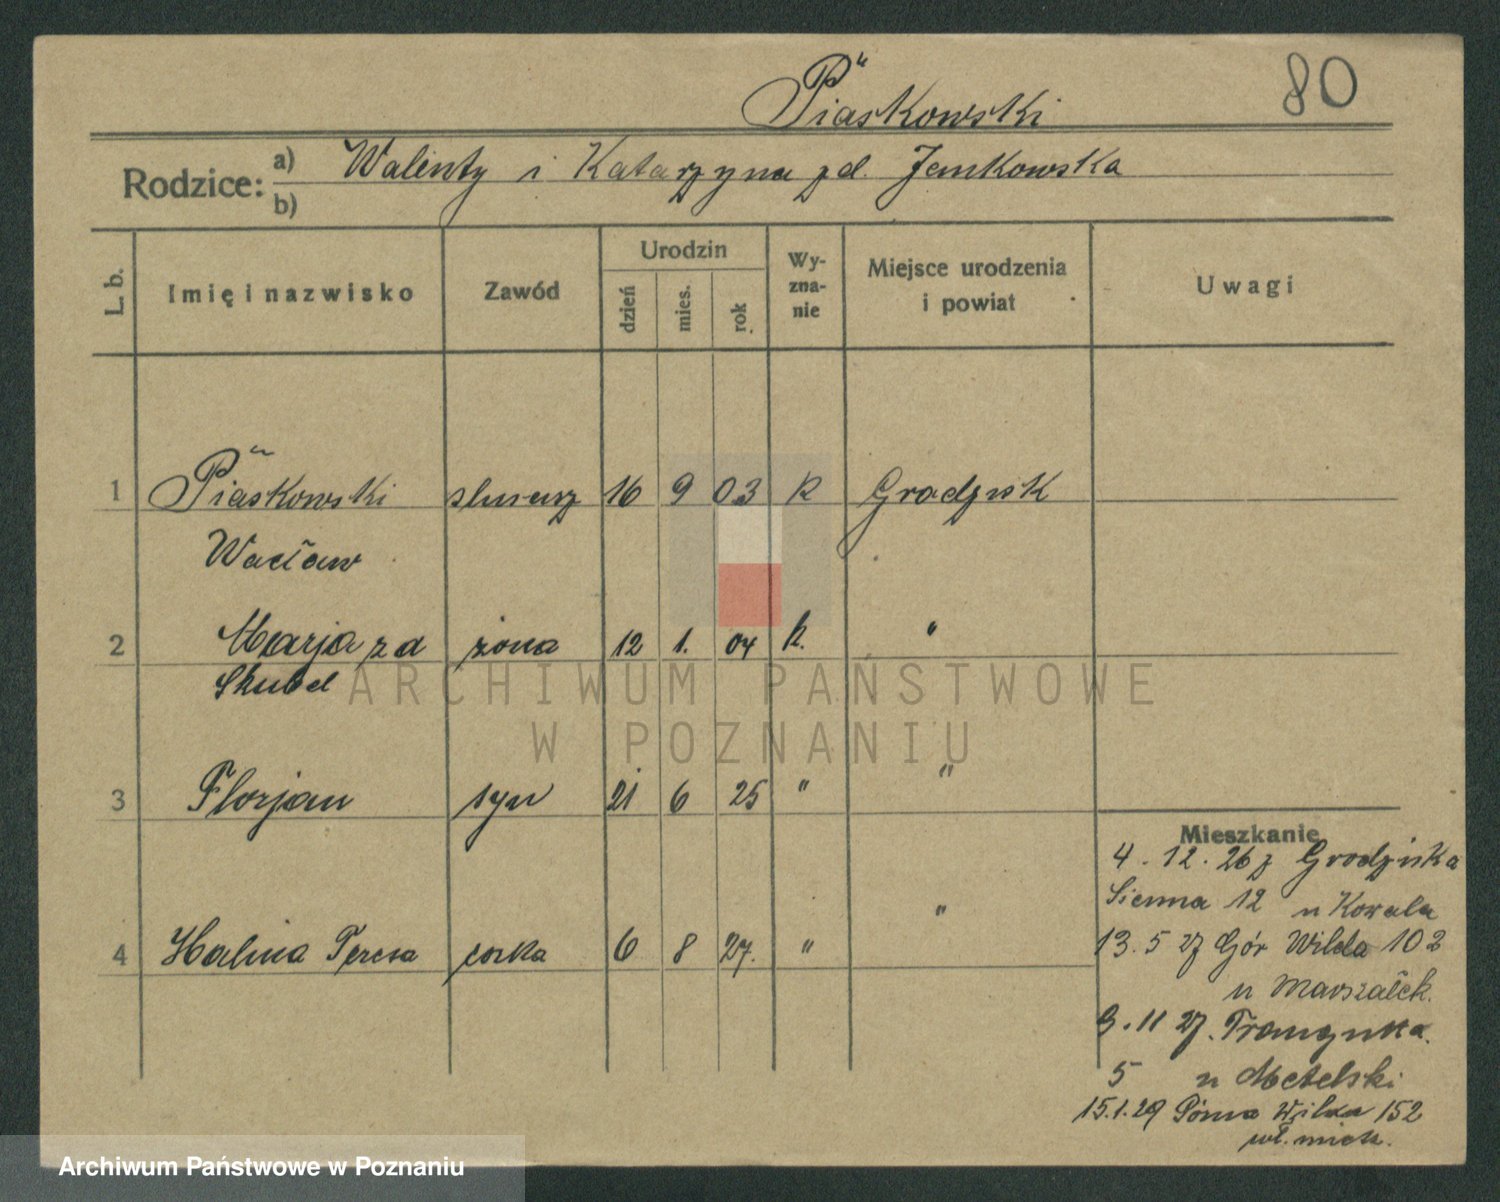 80
Piaskowski
Rodzice: a) Walenty i Katarzyna zd. Jankowska
b)
L. b. Imię i nazwisko Zawód Urodzin dzień mies. rok Wy-zna-nie Miejsce urodzenia i powiat Uwagi
1 Piaskowski ślusarz 16 9 03 k Grodzisk
Wacław
2 Marja zd żona 12 1. 04 k. "
Skubel
3 Florjan syn 21 6 25 " "
4 Halina Teresa córka 6 8 27. " "
Mieszkanie
4. 12. 26 z Grodziska
Sienna 12 u Kowala
13. 5 27 Gór Wilda 102
u Marszałek.
3. 11 27. Traugutta.
5 u Metelski
15.1.29 Górna Wilda 152
wł. miek.
ARCHIWUM PAŃSTWOWE
W POZNANIU
Archiwum Państwowe w Poznaniu